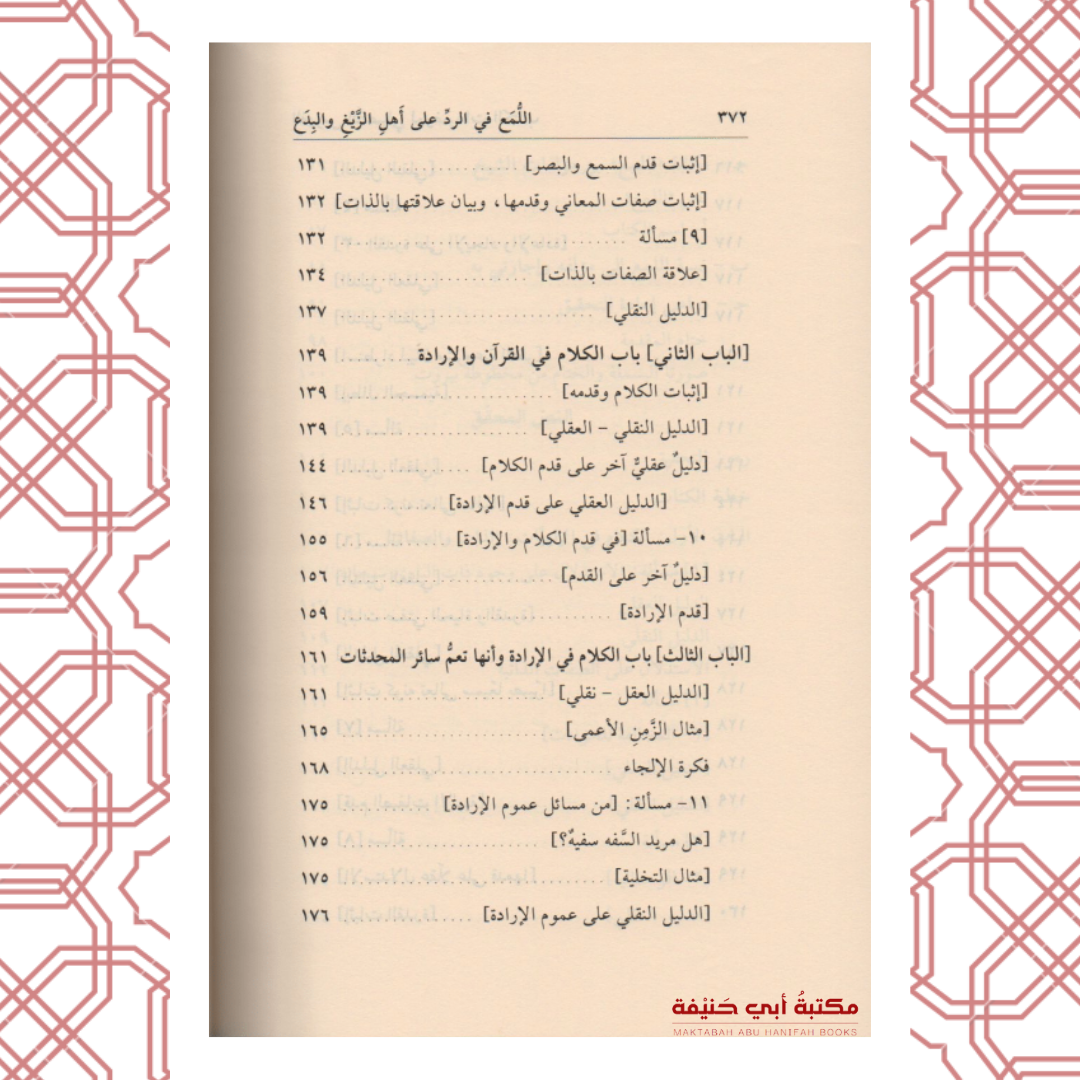 ٣٧٢ اللُّمَع في الردِّ على أَهلِ الزَّيْغِ والبِدَع
[إثبات قدم السمع والبصر] ١٣١
[إثبات صفات المعاني وقدمها، وبيان علاقتها بالذات] ١٣٢
[٩] مسألة ١٣٢
[علاقة الصفات بالذات] ١٣٤
[الدليل النقلي] ١٣٧
[الباب الثاني] باب الكلام في القرآن والإرادة ١٣٩
[إثبات الكلام وقدمه] ١٣٩
[الدليل النقلي – العقلي] ١٣٩
[دليلٌ عقليٌّ آخر على قدم الكلام] ١٤٤
[الدليل العقلي على قدم الإرادة] ١٤٦
١٠– مسألة [في قدم الكلام والإرادة] ١٥٥
[دليلٌ آخر على القدم] ١٥٦
[قدم الإرادة] ١٥٩
[الباب الثالث] باب الكلام في الإرادة وأنها تعمُّ سائر المحدثات ١٦١
[الدليل العقل – نقلي] ١٦١
[مثال الزَّمِنِ الأعمى] ١٦٥
فكرة الإلجاء ١٦٨
١١– مسألة: [من مسائل عموم الإرادة] ١٧٥
[هل مريد السَّفه سفيهٌ؟] ١٧٥
[مثال التخلية] ١٧٥
[الدليل النقلي على عموم الإرادة] ١٧٦
مكتبةُ أبي حَنيْفة
MAKTABAH ABU HANIFAH BOOKS